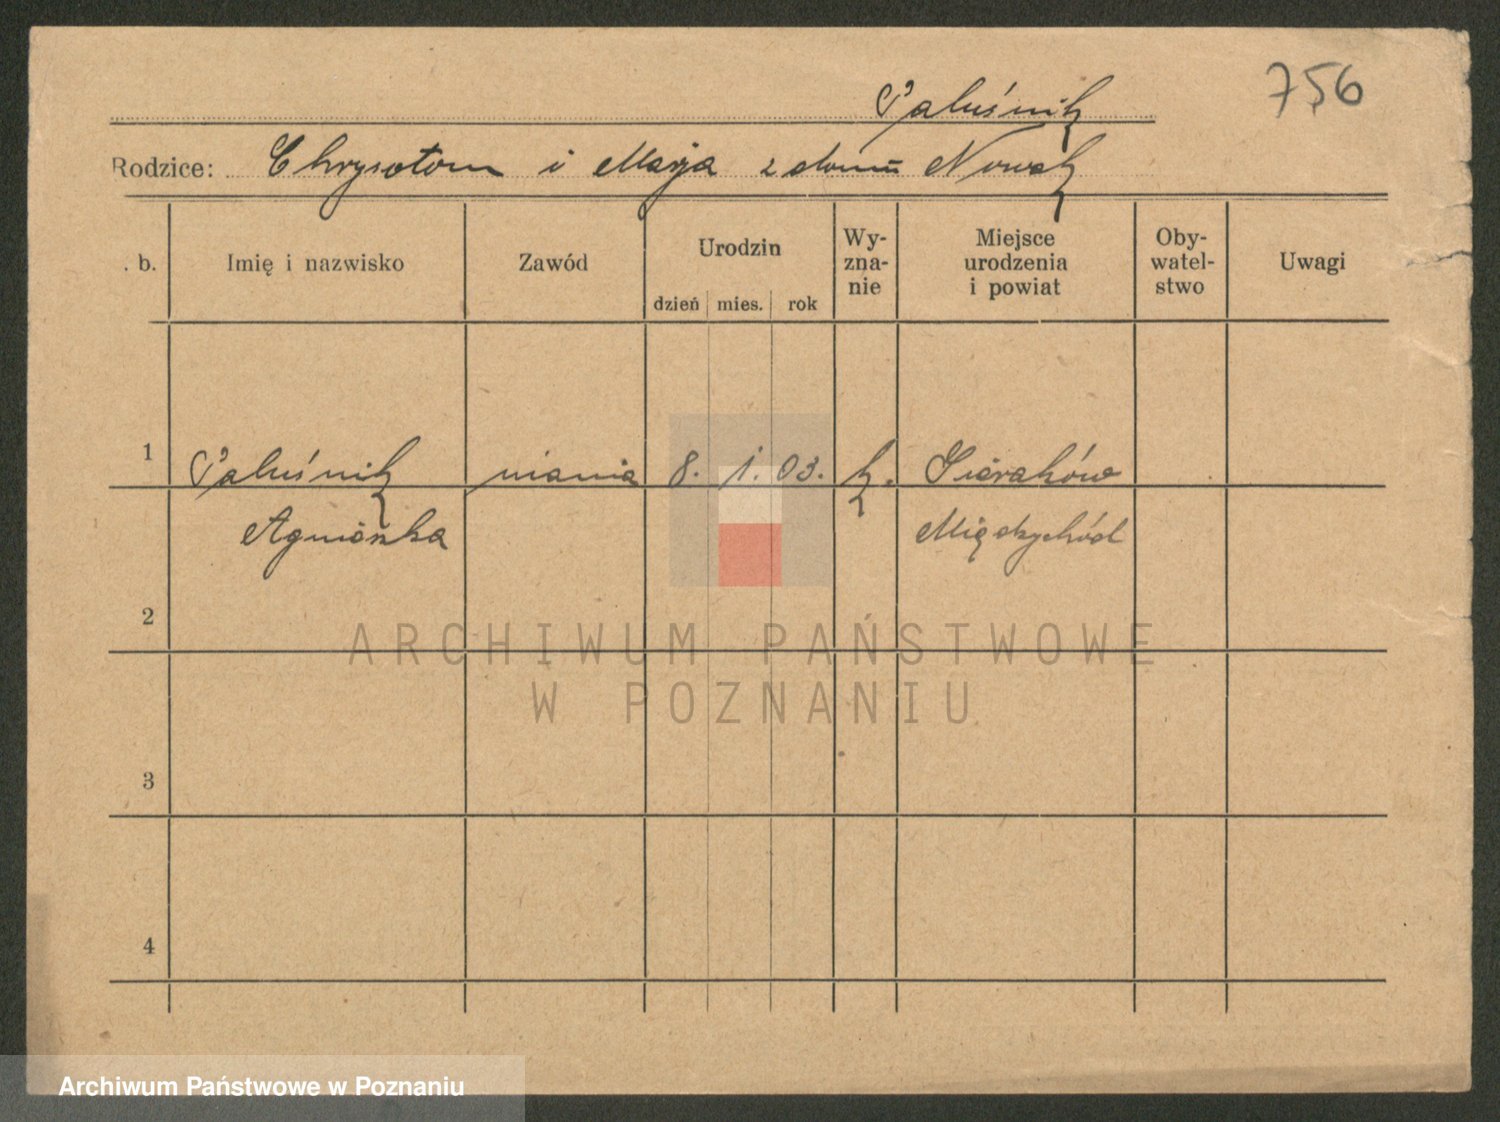 756
Paluśnik
Rodzice: Chrysotom i Marja z domu Nowak
. b. Imię i nazwisko Zawód Urodzin dzień mies. rok Wy-zna-nie Miejsce urodzenia i powiat Oby-watel-stwo Uwagi
1 Paluśnik niania 8. 1. 03. k. Sieraków
Agnieszka Międzychód
2
ARCHIWUM PAŃSTWOWE
W POZNANIU
3
4
Archiwum Państwowe w Poznaniu